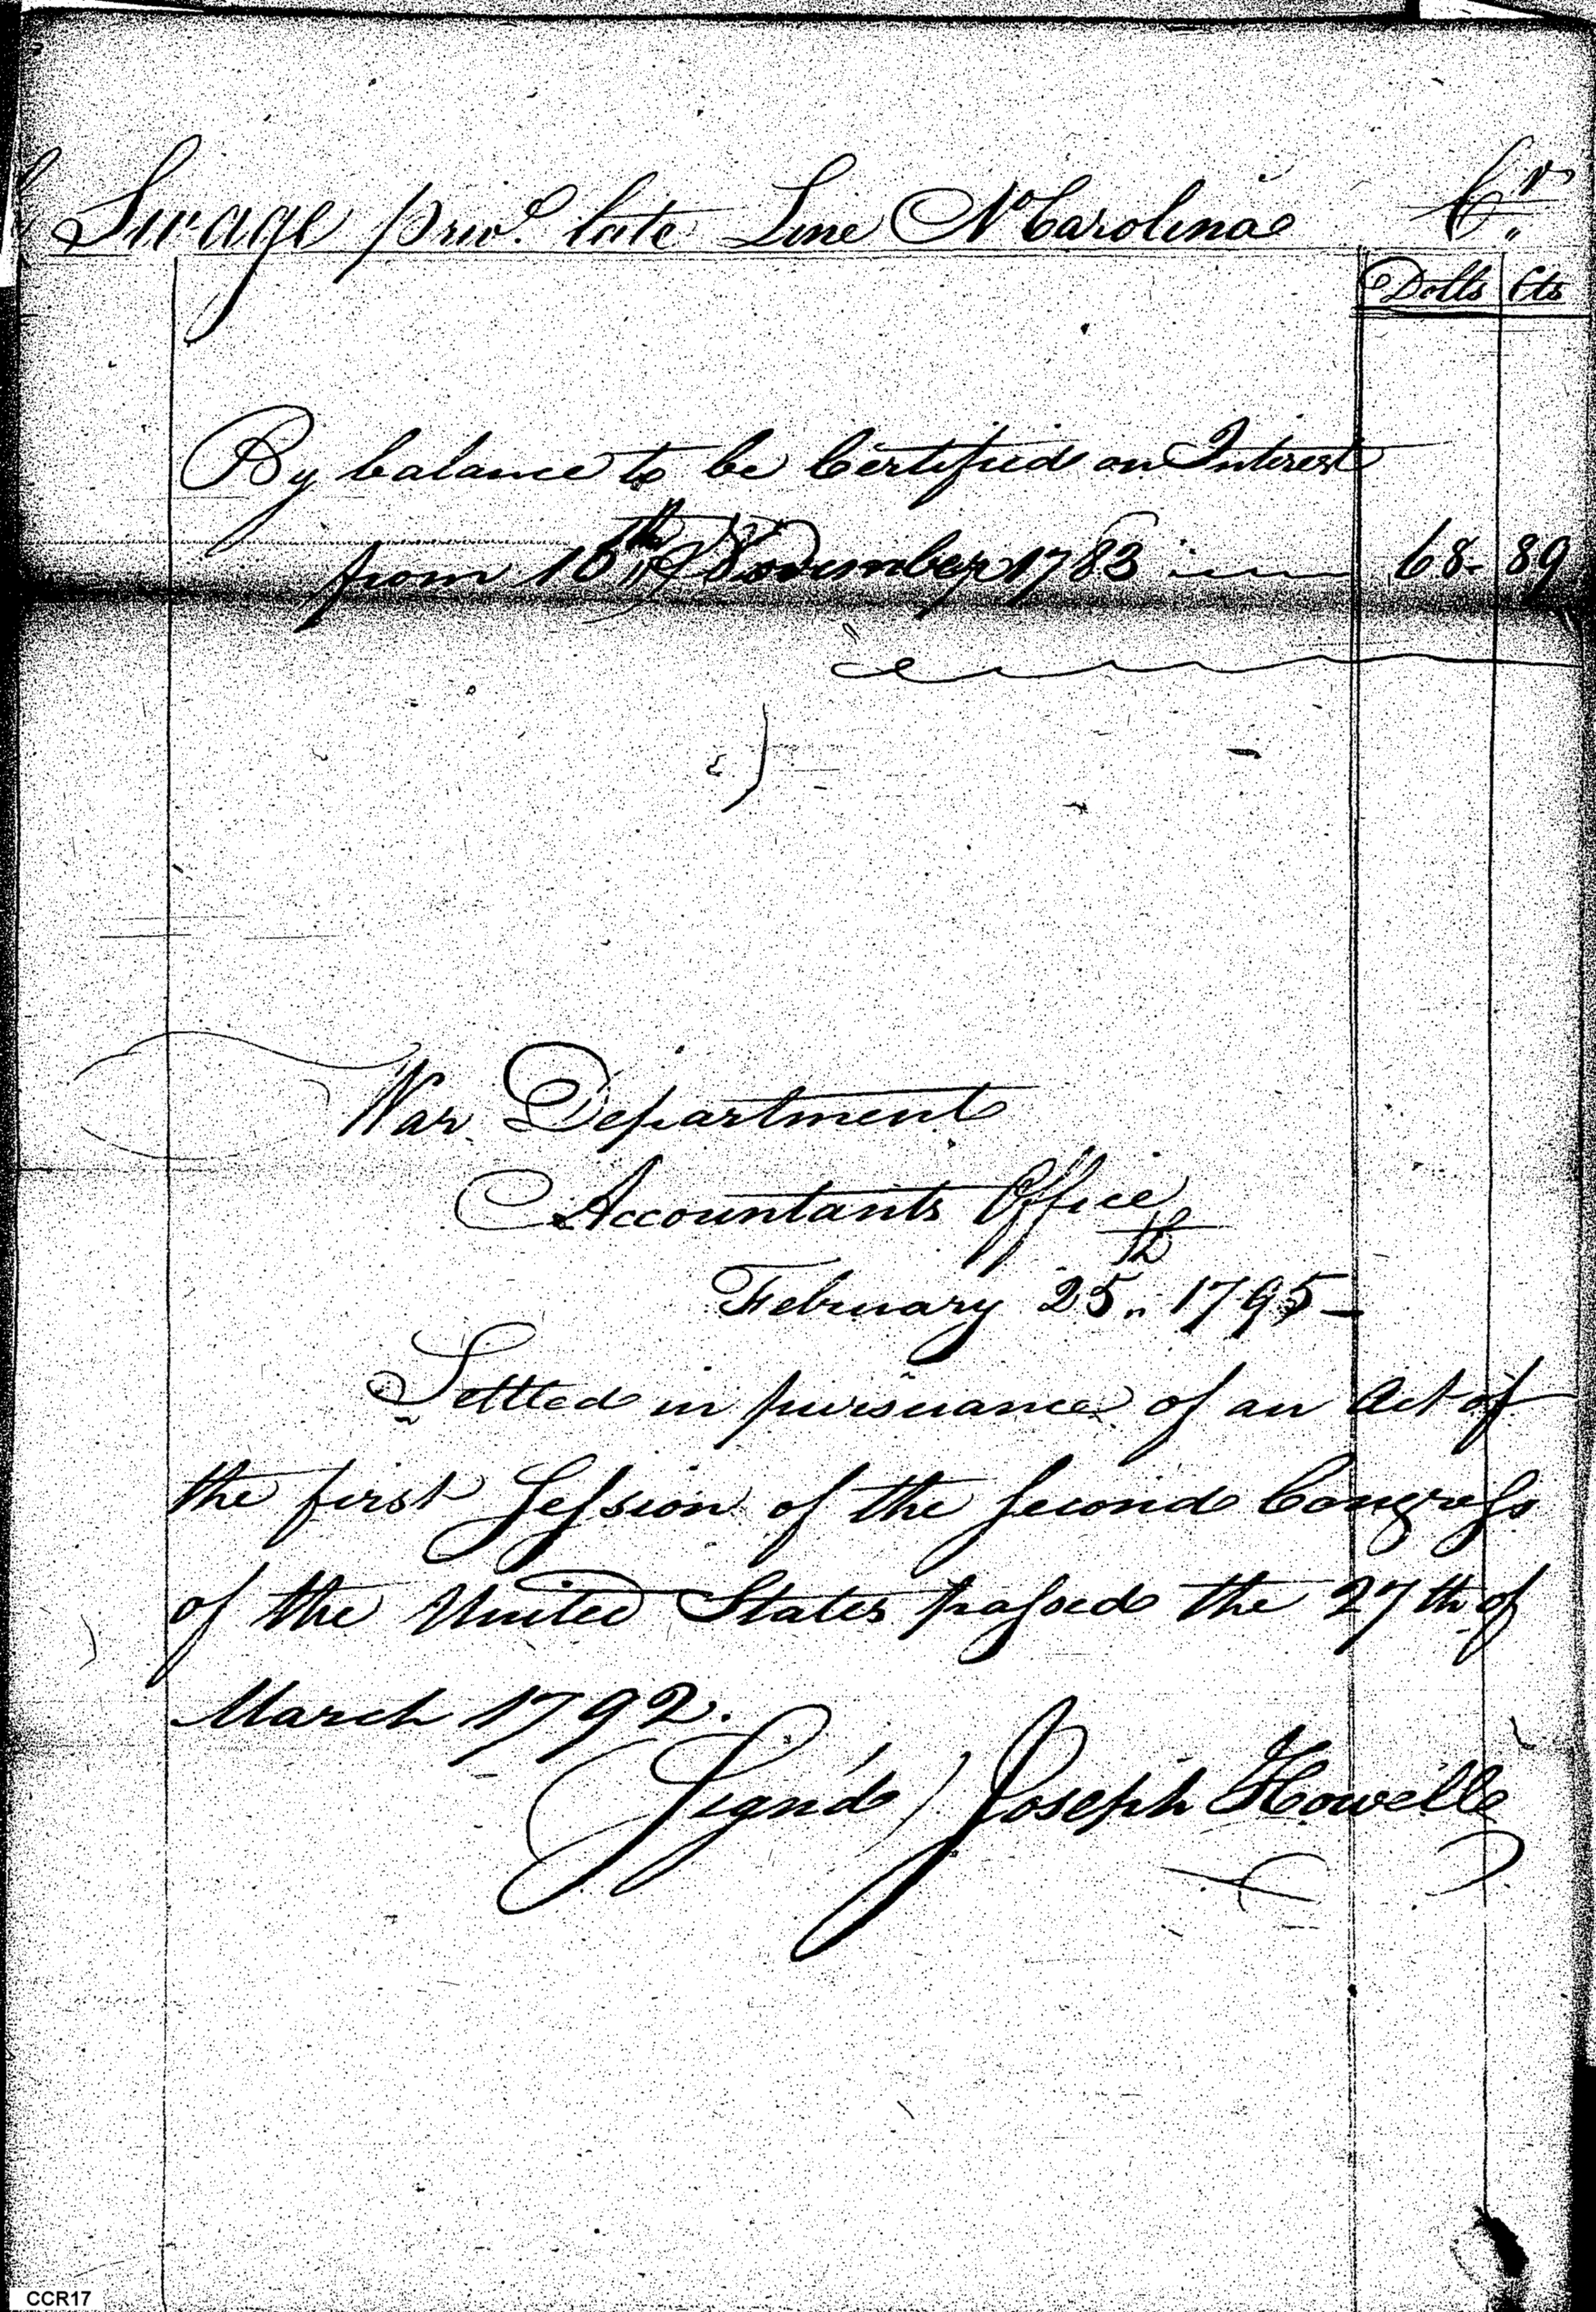 Savage priv.^e late Line N Carolina C^r.
Dolls Cts
By balance to be Certified on Interest
from 10^th November 1783 68 89
War Department
Accountants Office
February 25^th 1795
Settled in pursuance of an Act of
the first Session of the Second Congress
of the United States passed the 27th of
March 1792.
(Sign'd) Joseph Howell
CCR17